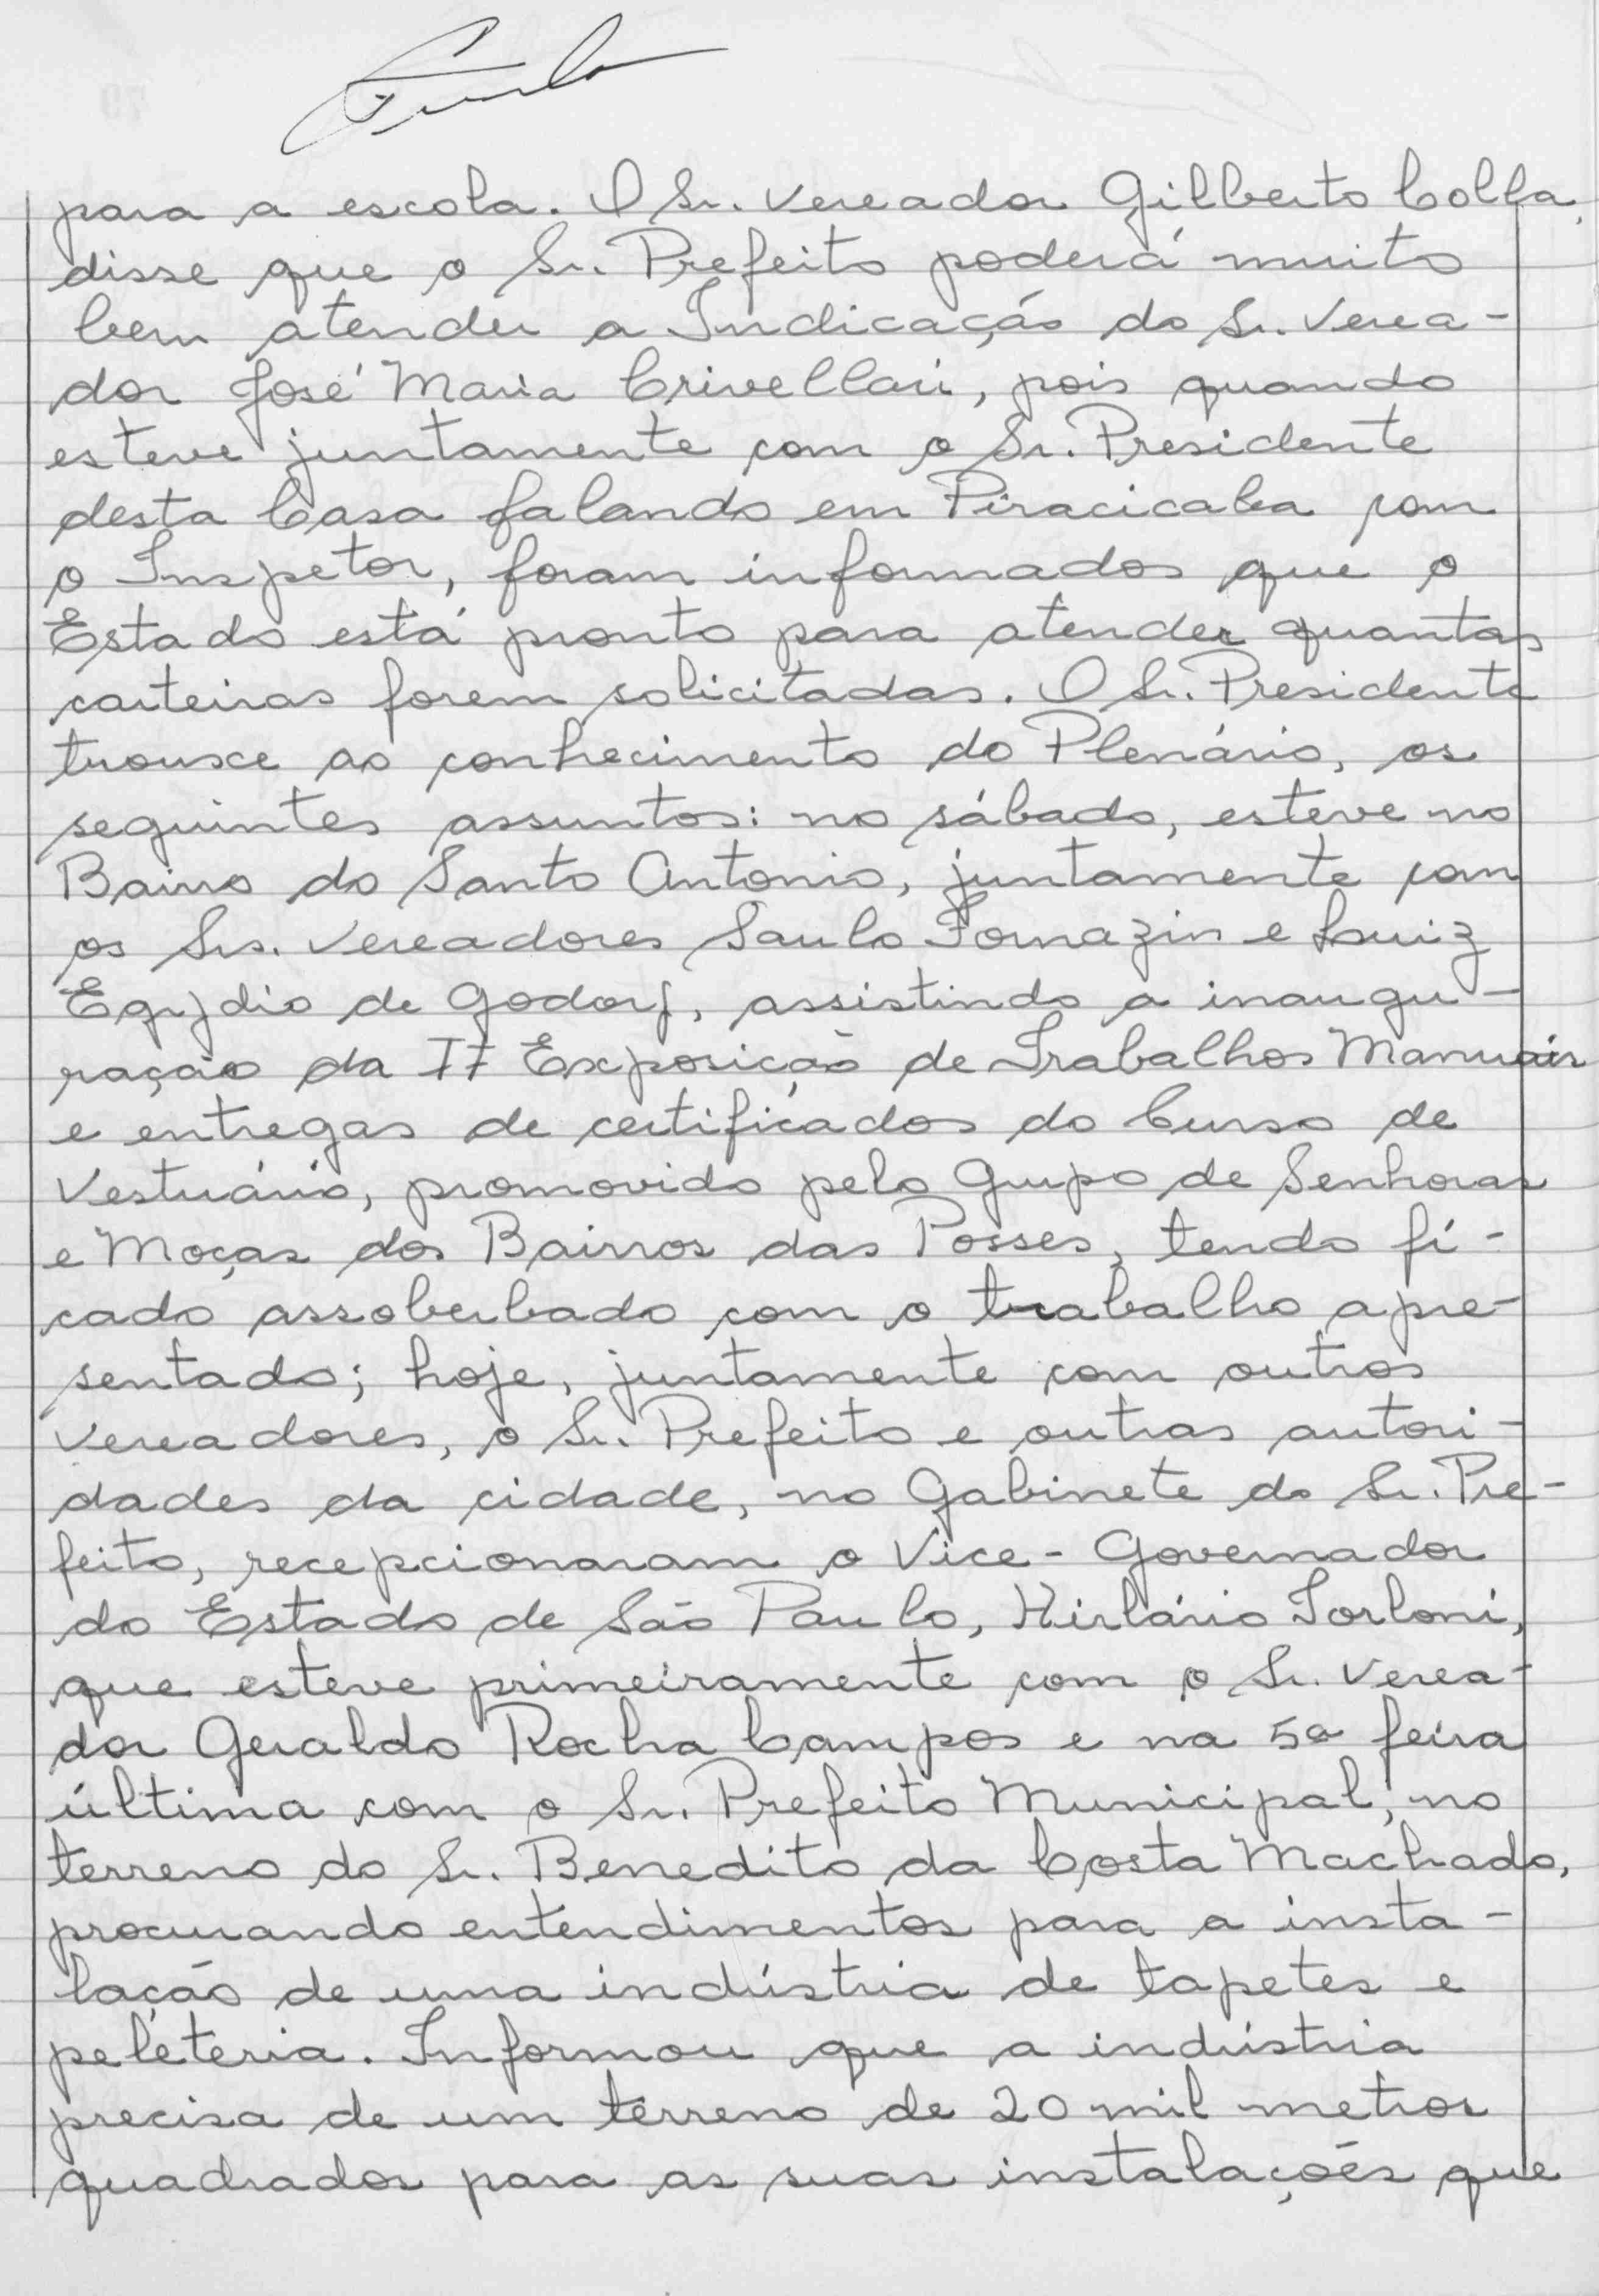 para a escola. O Sr. Vereador Gilberto Colla,
disse que o Sr. Prefeito poderá muito
bem atender a Indicação do Sr. Verea-
dor José Maria Crivellari, pois quando
esteve juntamente com o Sr. Presidente
desta Casa falando em Piracicaba com
o Inspetor, foram informados que o
Estado está pronto para atender quantas
carteiras forem solicitadas. O Sr. Presidente
trousce ao conhecimento do Plenário, os
seguintes assuntos: no sábado, esteve no
Bairro do Santo Antonio, juntamente com
os Srs. Vereadores Saulo Fornazin e Luiz
Egydio de Godoy, assistindo a inaugu-
ração da II Exposição de Trabalhos Manuais
e entregas de certificados do Curso de
Vestuário, promovido pelo Grupo de Senhoras
e Moças dos Bairros das Posses, tendo fi-
cado assoberbado com o trabalho apre-
sentado; hoje, juntamente com outros
Vereadores, o Sr. Prefeito e outras autori-
dades da cidade, no Gabinete do Sr. Pre-
feito, recepcionaram o Vice-Governador
do Estado de São Paulo, Hirlário Torloni,
que esteve primeiramente com o Sr. Verea-
dor Geraldo Rocha Campos e na 5a feira
última com o Sr. Prefeito Municipal, no
terreno do Sr. Benedito da Costa Machado,
procurando entendimentos para a insta-
lação de uma indústria de tapetes e
peleteria. Informou que a indústria
precisa de um terreno de 20 mil metros
quadrados para as suas instalações que